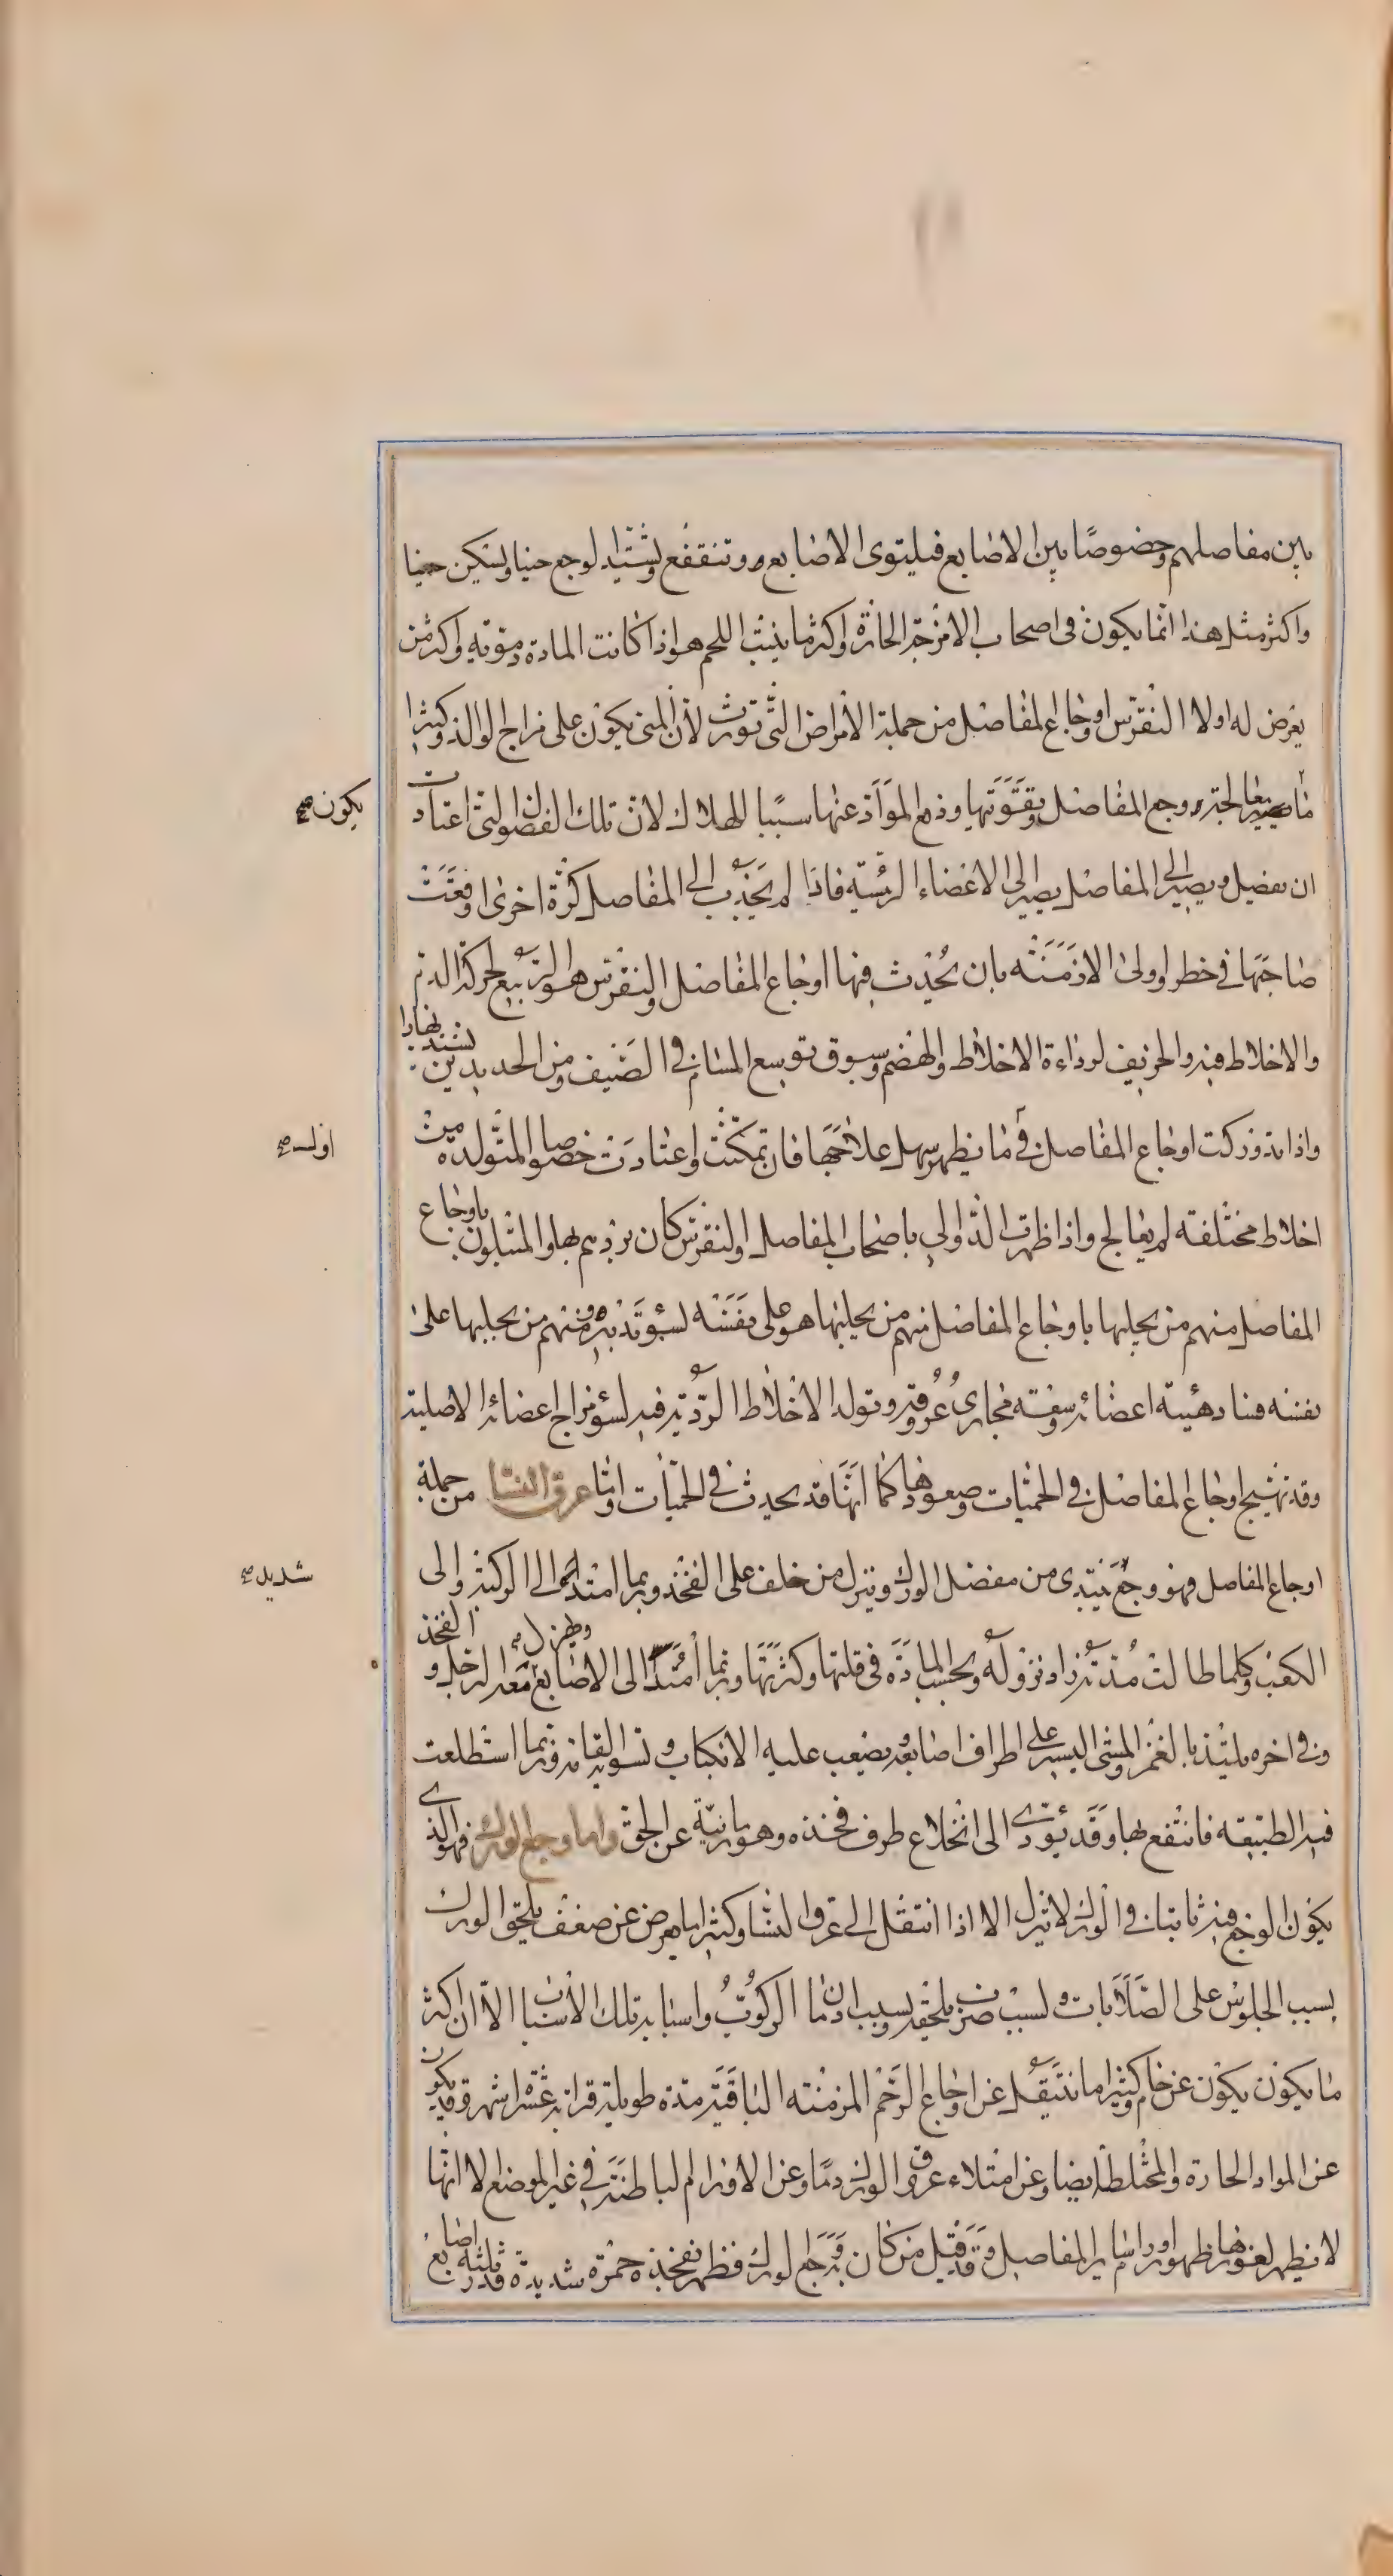 بين مفاصلهم وخصوصا بين الاصابع فيلتوى الاصابع وتتقفع ويشتد الوجع حينا ويسكن حينا
واكثر مثل هذا انما يكون فى اصحاب الامزجة الحارة واكثر ما ينبت اللحم هو اذا كانت المادة دموية واكثر من
يعرض له اولا النقرس واوجاع المفاصل من جملة الامراض التى تورث لان المنى يكون على مزاج الوالد وكثيرا
ما يصير معالجة وجع المفاصل وتقويتها وردع المواد عنها سببا للهلاك لان تلك الفضول التى اعتادت
يكون صح
ان تفصل ويصير الى المفاصل يصير الى الاعضاء الرئيسة فاذا لم يجذب الى المفاصل كرة اخرى اوقعت
صاحبها فى خطر واولى الازمنة بان يحدث فيها اوجاع المفاصل والنقرس هو الربيع لحركة الدم
والاخلاط فيه والخريف لرداءة الاخلاط والهضم وسبوق توسع المسام فى الصيف ومن الحديدين
واذا تدوركت اوجاع المفاصل فى ما يظهر سهل علاجها فان تمكنت واعتادت خصوصا المتولدة من
اول صح
اخلاط مختلفة لم يعالج واذا ظهرت الدوالى باصحاب المفاصل والنقرس كان برؤهم بها والمبتلون باوجاع
المفاصل منهم من يجلبها باوجاع المفاصل منهم من يجلبها هو على نفسه لسوء تدبيره ومنهم من يجلبها على
نفسه فساد هيئة اعضائه وسعة مجارى عروقه وتولد الاخلاط الردية فيه لسوء مزاج اعضائه الاصلية
وقد تهيج اوجاع المفاصل فى الحميات وصعودها كما انها قد يحدث فى الحميات واما عرق النسا من جملة
اوجاع المفاصل فهو وجع يبتدى من مفصل الورك وينزل من خلف على الفخذ وربما امتد الى الركبة والى
شديد صح
الكعب وكلما طالت مدته زاد نزوله وبحسب المادة فى قلتها وكثرتها وربما امتد الى الاصابع ويهزل معه الرجل والفخذ
وفى اخره يلتذ بالغمز والمشى اليسير على اطراف اصابعه ويصعب عليه الانكباب وتسوية القامة وربما استطلعت
فيه الطبيعة فانتفع بها وقد يؤدى الى انخلاع طرف فخذه وهو رمانته عن الحق واما وجع الورك فهو الذى
يكون الوجع فيه ثابتا فى الورك لا ينزل الا اذا انتقل الى عرق النسا وكثيرا ما يعرض عن ضعف يلحق الورك
بسبب الجلوس على الصلابات ولسبب ضربة يلحقه وبسبب ادمان الركوب واسبابه تلك الاسباب الا ان اكثر
ما يكون يكون عن خام وكثيرا ما ينتقل عن اوجاع الرحم المزمنة الباقية مدة طويلة قرابة عشرة اشهر وقد يكون
عن المواد الحارة والمختلطة ايضا وعن امتلاء عروق الورك دما وعن الاورام الباطنة فى غير الموضع الا انها
لا يظهر لغورها ظهور اورام سائر المفاصل وقد قيل من كان به وجع الورك فظهر بفخذه حمرة شديدة قدر ثلثة اصابع